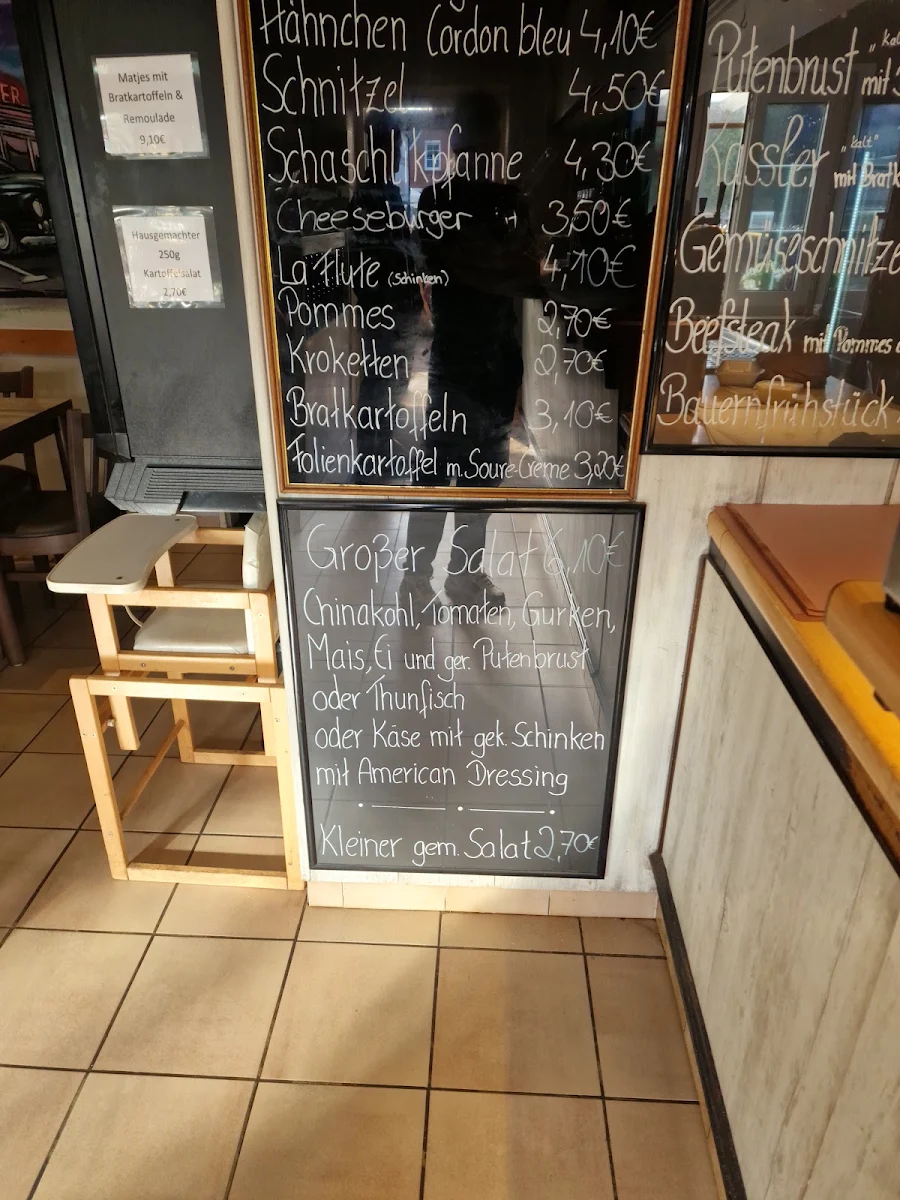 ER
Matjes mit
Bratkartoffeln &
Remoulade
9,10€
Hausgemachter
250g
Kartoffelsalat
2,70€
Hähnchen Cordon bleu 4,10€
Schnitzel 4,50€
Schaschlikpfanne 4,30€
Cheeseburger 3,50€
La Flute (Schinken) 4,10€
Pommes 2,70€
Kroketten 2,70€
Bratkartoffeln 3,10€
Folienkartoffel m. Soure-Creme 3,20€
Großer Salat 6,10€
Chinakohl, Tomaten, Gurken,
Mais, Ei und ger. Putenbrust
oder Thunfisch
oder Käse mit gek. Schinken
mit American Dressing
Kleiner gem. Salat 2,70€
Putenbrust mit
Kassler "kalt" mit
Gemüseschnitze
Beefsteak mit Pommes
Bauernfrühstück